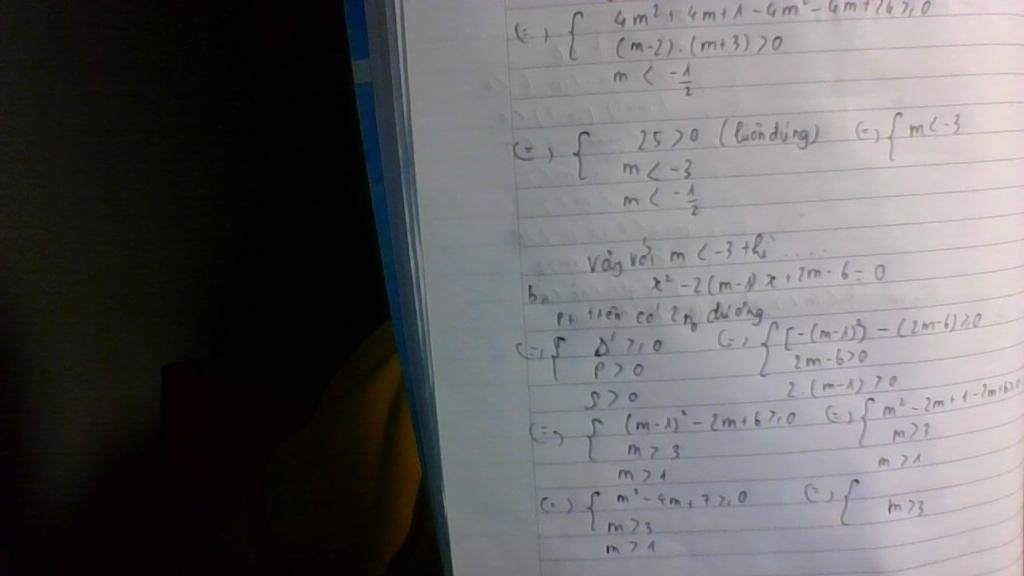 (=) { 4m² + 4m + 1 - 4m² - 4m + 24 ≥ 0
(m-2).(m+3) > 0
m < -1/2
(=) { 25 > 0 (luôn đúng) (=) { m < -3
m < -3
m < -1/2
Vậy với m < -3 thì .....
b, x² - 2(m-1)x + 2m - 6 = 0
Pt trên có 2 n₀ dương.
(=) { Δ' ≥ 0 (=) { [-(m-1)²] - (2m-6) ≥ 0
P > 0 2m-6 > 0
S > 0 2.(m-1) > 0
(=) { (m-1)² - 2m + 6 ≥ 0 (=) { m² - 2m + 1 - 2m + 6 ≥ 0
m > 3 m > 3
m > 1 m > 1
(=) { m² - 4m + 7 ≥ 0 (=) { m > 3
m > 3
m > 1